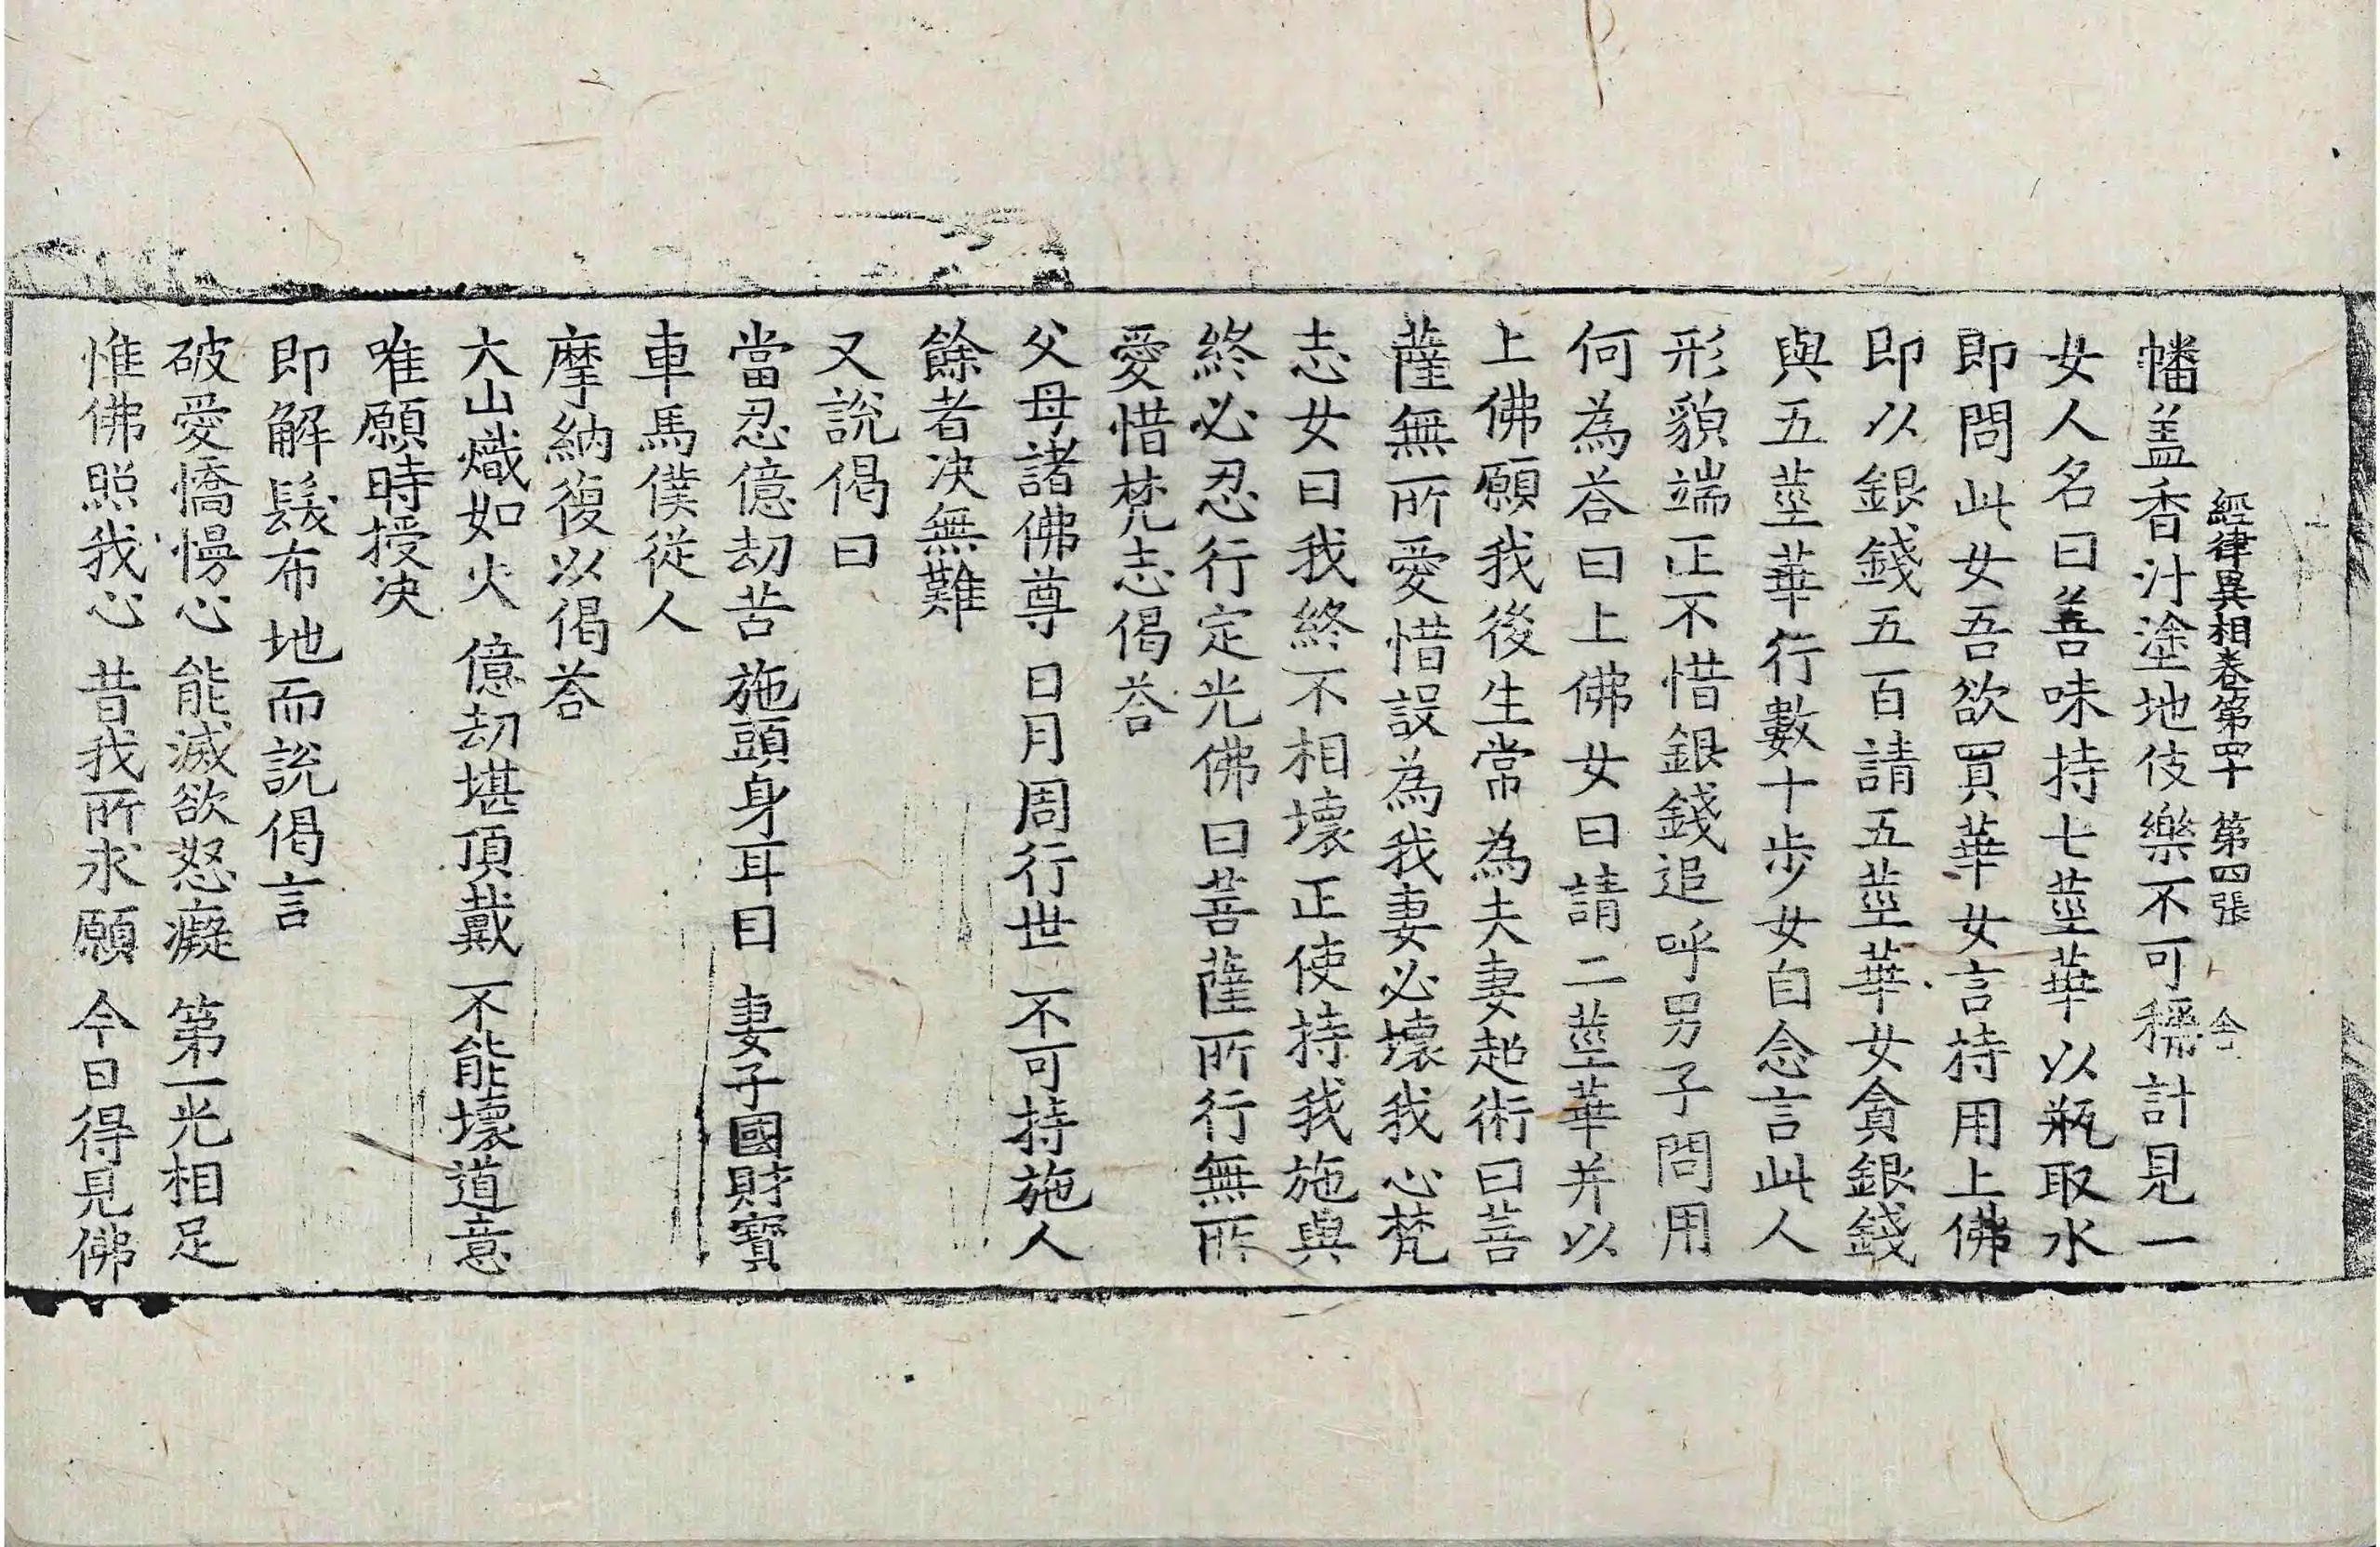 經律異相卷第四十 第四張
幡盖香汁塗地伎樂不可稱計見一
女人名曰善味持七莖華以瓶取水
即問此女吾欲買華女言持用上佛
即以銀錢五百請五莖華女貪銀錢
與五莖華行數十步女自念言此人
形貌端正不惜銀錢追呼男子問用
何為荅曰上佛女曰請二莖華并以
上佛願我後生常為夫妻超術曰菩
薩無所愛惜設為我妻必壞我心梵
志女曰我終不相壞正使持我施與
終必忍行定光佛曰菩薩所行無所
愛惜梵志偈荅
父母諸佛尊 日月周行世 不可持施人
餘者决無難
又說偈曰
當忍億劫苦 施頭身耳目 妻子國財寶
車馬僕從人
摩納復以偈荅
大山熾如火 億劫堪頂戴 不能壞道意
唯願時授决
即解髮布地而說偈言
破愛憍慢心 能滅欲怒癡 第一光相足
惟佛照我心 昔我所求願 今日得見佛